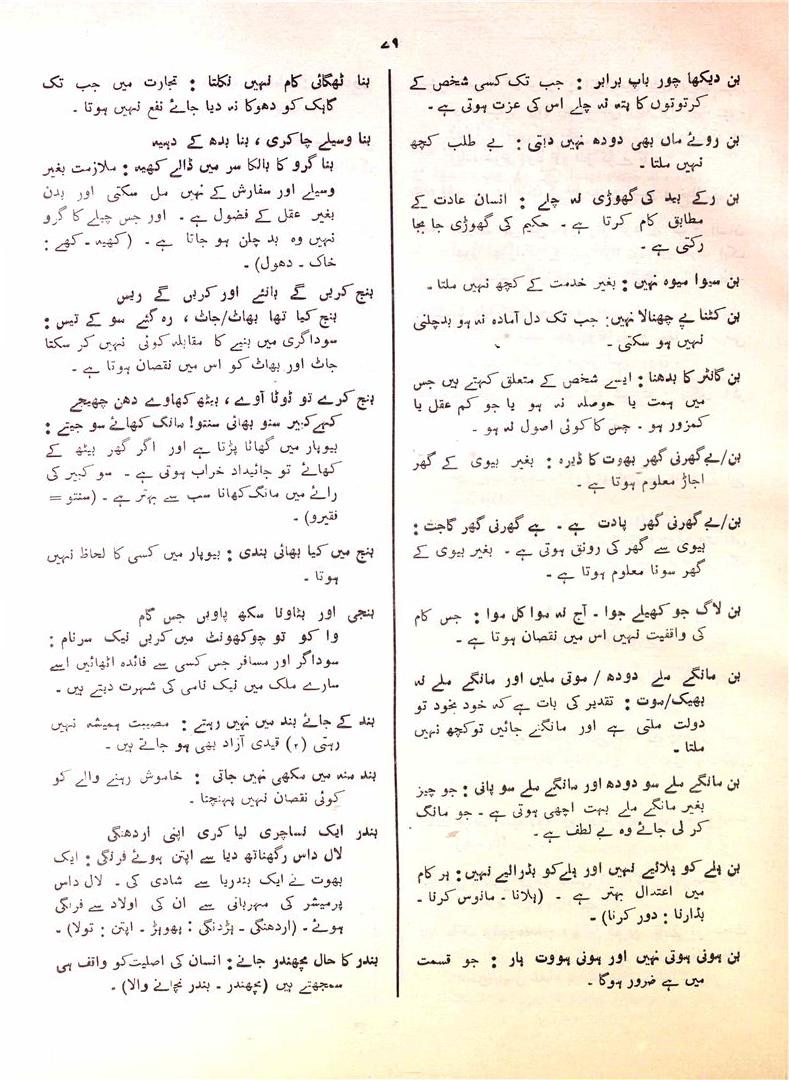 ۷۹
بن دیکھا چور باپ برابر : جب تک کسی شخص کے
کرتوتوں کا پتہ نہ چلے اس کی عزت ہوتی ہے ۔
بن روئے ماں بھی دودھ نہیں دیتی : بے طلب کچھ
نہیں ملتا ۔
بن رکے بید کی گھوڑی نہ چلے : انسان عادت کے
مطابق کام کرتا ہے ۔ حکیم کی گھوڑی جا بجا
رکتی ہے ۔
بن سیوا میوہ نہیں : بغیر خدمت کے کچھ نہیں ملتا ۔
بن کٹنا پے چھنالا نہیں : جب تک دل آمادہ نہ ہو بدچلنی
نہیں ہو سکتی ۔
بن گانٹھ کا بدھنا : ایسے شخص کے متعلق کہتے ہیں جس
میں ہمت یا حوصلہ نہ ہو یا جو کم عقل یا
کمزور ہو ۔ جس کا کوئی اصول نہ ہو ۔
بن/بے گھرنی گھر بھوت کا ڈیرہ : بغیر بیوی کے گھر
اجاڑ معلوم ہوتا ہے ۔
بن/بے گھرنی گھر پادت ہے ۔ ہے گھرنی گھر گاجت :
بیوی سے گھر کی رونق ہوتی ہے ۔ بغیر بیوی کے
گھر سونا معلوم ہوتا ہے ۔
بن لاگ جو کھیلے جوا ۔ آج نہ موا کل موا : جس کام
کی واقفیت نہیں اس میں نقصان ہوتا ہے ۔
بن مانگے ملے دودھ / موتی ملیں اور مانگے ملے نہ
بھیک/موت : تقدیر کی بات ہے کہ خود بخود تو
دولت ملتی ہے اور مانگنے جائیں تو کچھ نہیں
ملتا ۔
بن مانگے ملے سو دودھ اور مانگے ملے سو پانی : جو چیز
بغیر مانگے ملے بہت اچھی ہوتی ہے ۔ جو مانگ
کر لی جائے وہ بے لطف ہے ۔
بن ہلے کو ہلائیے نہیں اور ہلے کو بڈرائیے نہیں : ہر کام
میں اعتدال بہتر ہے ۔ (ہلانا ۔ مانوس کرنا ۔
بڈارنا : دور کرنا) ۔
بن ہونی ہوتی نہیں اور ہونی ہووت ہار : جو قسمت
میں ہے ضرور ہوگا ۔
بنا ٹھگائی کام نہیں نکلتا : تجارت میں جب تک
گاہک کو دھوکا نہ دیا جائے نفع نہیں ہوتا ۔
بنا وسیلے چاکری ، بنا بدھ کے دہیہ
بنا گرو کا بالکا سر میں ڈالے کھیہ : ملازمت بغیر
وسیلے اور سفارش کے نہیں مل سکتی اور بدن
بغیر عقل کے فضول ہے ۔ اور جس چیلے کا گرو
نہیں وہ بد چلن ہو جاتا ہے ۔ (کھیہ ۔ کھے :
خاک ۔ دھول) ۔
بنج کریں گے بانئے اور کریں گے ریس
بنج کیا تھا بھاٹ/جاٹ ، رہ گئے سو کے تیس :
سوداگری میں بنیے کا مقابلہ کوئی نہیں کر سکتا
جاٹ اور بھاٹ کو اس میں نقصان ہوتا ہے ۔
بنج کرے تو ٹوٹا آوے ، بیٹھ کھاوے دھن چھیجے
کہے کبیر سنو بھائی سنتو! مانگ کھائے سو جیتے :
بیوپار میں گھاٹا پڑتا ہے اور اگر گھر بیٹھ کے
کھائے تو جائیداد خراب ہوتی ہے ۔ سو کبیر کی
رائے میں مانگ کھانا سب سے بہتر ہے ۔ (سنتو =
فقیرو) ۔
بنج میں کیا بھائی بندی : بیوپار میں کسی کا لحاظ نہیں
ہوتا ۔
بنجی اور بٹاونا سکھ پاویں جس گام
وا کو تو چوکھونٹ میں کریں نیک سرنام :
سوداگر اور مسافر جس کسی سے فائدہ اٹھائیں اسے
سارے ملک میں نیک نامی کی شہرت دیتے ہیں ۔
بند کے جائے بند میں نہیں رہتے : مصیبت ہمیشہ نہیں
رہتی (۲) قیدی آزاد بھی ہو جاتے ہیں ۔
بند منہ میں مکھی نہیں جاتی : خاموش رہنے والے کو
کوئی نقصان نہیں پہنچتا ۔
بندر ایک نساچری لیا کری اپنی اردھنگی
لال داس رگھناتھ دیا سے اپتن ہوئے فرنگی : ایک
بھوت نے ایک بندریا سے شادی کی ۔ لال داس
پرمیشر کی مہربانی سے ان کی اولاد سے فرنگی
ہوئے ۔ (اردھنگی ۔ ہڑدنگی : پھوہڑ ۔ اپتن : تولا) ۔
بندر کا حال مچھندر جانے : انسان کی اصلیت کو واقف ہی
سمجھتے ہیں (مچھندر ۔ بندر نچانے والا) ۔